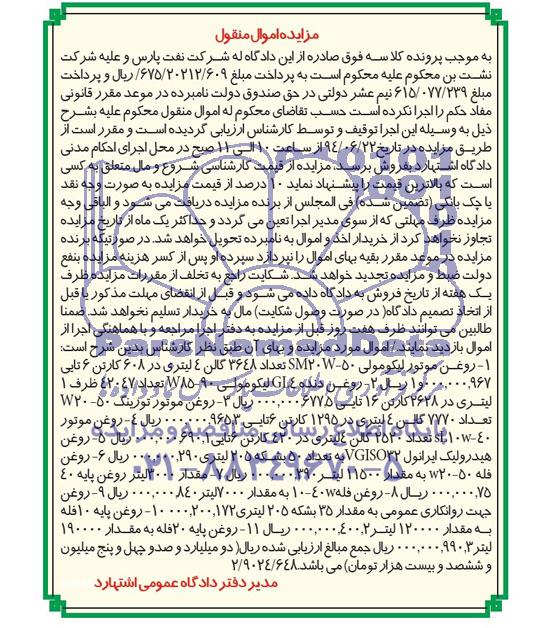 مزایده اموال منقول
به موجب پرونده کلاسه فوق صادره از این دادگاه له شرکت نفت پارس و علیه شرکت
نشت بن محکوم علیه محکوم است به پرداخت مبلغ ۶۷۵/۲۰۲۱۲/۶۰۹/ ریال و پرداخت
مبلغ ۶۱۵/۰۷۷/۲۳۹ نیم عشر دولتی در حق صندوق دولت نامبرده در موعد مقرر قانونی
مفاد حکم را اجرا نکرده است حسب تقاضای محکوم له اموال منقول محکوم علیه بشرح
ذیل به وسیله این اجرا توقیف و توسط کارشناس ارزیابی گردیده است و مقرر است از
طریق مزایده در تاریخ ۹۴/۰۶/۲۲ از ساعت ۱۰ الی ۱۱ صبح در محل اجرای احکام مدنی
دادگاه اشتهارد بفروش برسد. مزایده از قیمت کارشناسی شروع و مال متعلق به کسی
است که بالاترین قیمت را پیشنهاد نماید ۱۰ درصد از قیمت مزایده به صورت وجه نقد
یا چک بانکی (تضمین شده) فی المجلس از برنده مزایده دریافت می شود و الباقی وجه
مزایده ظرف مهلتی که از سوی مدیر اجرا تعین می گردد و حداکثر یک ماه از تاریخ مزایده
تجاوز نخواهد کرد از خریدار اخذ و اموال به نامبرده تحویل خواهد شد. در صورتیکه برنده
مزایده در موعد مقرر بقیه بهای اموال را نپردازد سپرده او پس از کسر هزینه مزایده بنفع
دولت ضبط و مزایده تجدید خواهد شد. شکایت راجع به تخلف از مقررات مزایده ظرف
یک هفته از تاریخ فروش به دادگاه داده می شود و قبل از انقضای مهلت مذکور یا قبل
از اتخاذ تصمیم دادگاه( در صورت وصول شکایت) مال به خریدار تسلیم نخواهد شد. ضمنا
طالبین می توانند ظرف هفت روز قبل از مزایده به دفتر اجرا مراجعه و با هماهنگی اجرا از
اموال بازدید نمایند./ اموال مورد مزایده و بهای آن طبق نظر کارشناس بدین شرح است:
۱- روغن موتور لیکومولی SM۲۰W-۵۰ تعداد ۳۶۴۸ گالن ۴ لیتری در ۶۰۸ کارتن ۶ تایی
ریال ۲- روغن دنده GL۴ لیکومولی W۸۵-۹۰ تعداد ۴۲۰۴۷ ظرف ۱
لیتری در ۲۶۲۸ کارتن ۱۶ تایی ریال ۳- روغن موتور توزینگ W۲۰-۵۰
تعداد ۷۷۷۰ گالن ۴ لیتری در ۱۲۹۵ کارتن ۶تایی ریال ۴- روغن موتور
۱۰w-۴۰ تعداد ۲۵۲۰ گالن ۴لیتری در ۴۲۰ کارتن ۶تایی ریال ۵- روغن
هیدرولیک ایرانول VGISO۳۲ به تعداد ۵۰ بشکه ۲۰۵ لیتری ریال ۶- روغن
فله w۲۰-۵۰ به مقدار ۱۱۵۰۰ لیتر ریال ۷- مقدار لیتر روغن پایه ۴۰
۰۰۰,۰۰۰,۷۵ ریال ۸- روغن فله ۱۰-۴۰w به مقدار ۷۰۰۰لیتر ۰۰۰,۰۰۰,۸۴۰ ریال ۹- روغن
جهت روانکاری عمومی به مقدار ۳۵ بشکه ۲۰۵ لیتری ۱۰- روغن پایه ۱۰ فله
به مقدار ۱۲۰۰۰ لیتر ۰۰۰,۰۰۰,۴۰۰,۲ ریال ۱۱- روغن پایه ۲۰ فله به مقدار ۱۹۰۰۰
لیتر ۰۰۰,۰۰۰,۹۹۰,۳ ریال جمع مبالغ ارزیابی شده ریال( دو میلیارد و صدو چهل و پنج میلیون
و ششصد و بیست هزار تومان) می باشد. ۲/۹۰۲۴/۶۴۸
مدیر دفتر دادگاه عمومی اشتهارد
ParsNamadData
پایگاه اطلاع رسانی مناقصه و مزایده
۰۲۱-۸۸۳۴۹۶۷۰-۵